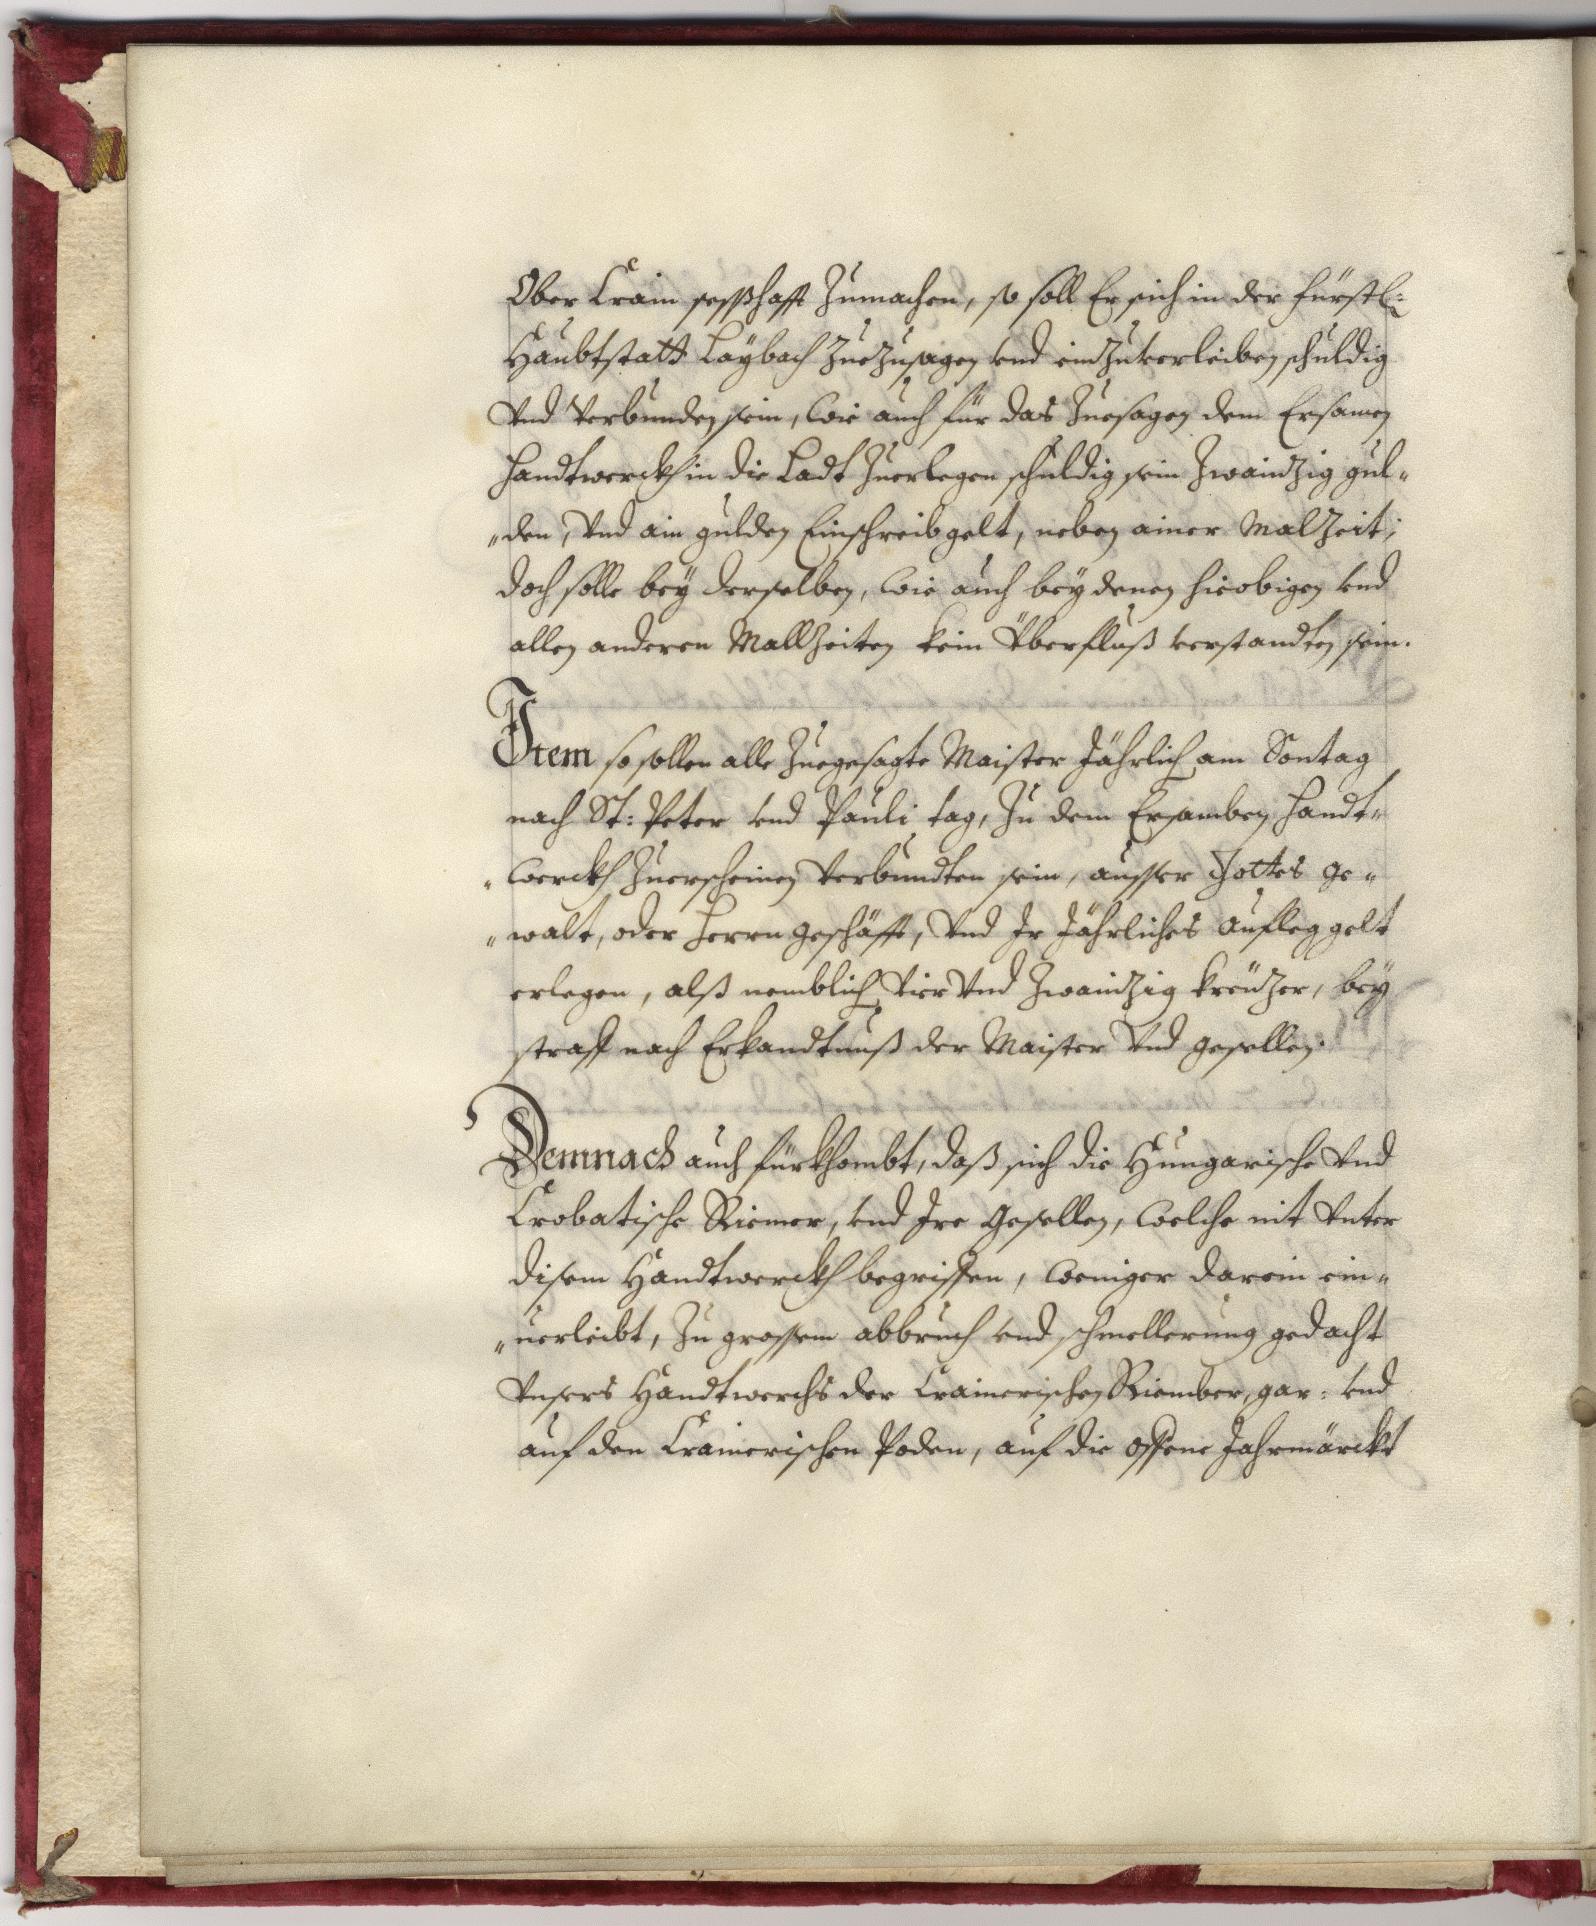 Ober Crain seßhafft Zumachen, so soll Er sich in der Fürstl:
Haubtstatt Laybach Zuezusagen vnd einzuverleiben schuldig
Vnd Verbunden sein, Wie auch für das Zuesagen dem Ersamen
Handtwerckh in die Ladt Zuerlegen schuldig sein Zwaintzig gul-
-den, Vnd ain gulden Einschreibgelt, neben ainer MalZeit;
doch solle bey derselben, Wie auch bey denen hieobigen vnd
allen anderen MallZeiten kein Überfluß verstandten sein.
Item so sollen alle Zuegesagte Maister Jährlich am Sontag
nach St: Peter vnd Pauli tag, Zu dem Ersamben Handt-
-Werckh Zuerscheinen Verbundten sein, ausser Gottes ge-
-walt, oder Herrn geschäfft, Vnd Ir Jährliches aufleg gelt
erlegen, alß nemblich Vier Vnd Zwaintzig kreüZer, bey
straff nach Erkandtnuß der Maister Vnd gesellen.
Demnach auch fürkhombt, daß sich die Hungarische Vnd
Crobatische Riemer, vnd Ire Gesellen, Welche nit Vnter
disem Handtwerckh begriffen, Weniger darein ein-
-uerleibt, Zu grossem abbruch vnd schmellerung gedacht
Vnsers Handtwerchs der Crainerischen Riember, gar: vnd
auf den Crainerischen Poden, auf die offene Jahrmärckt